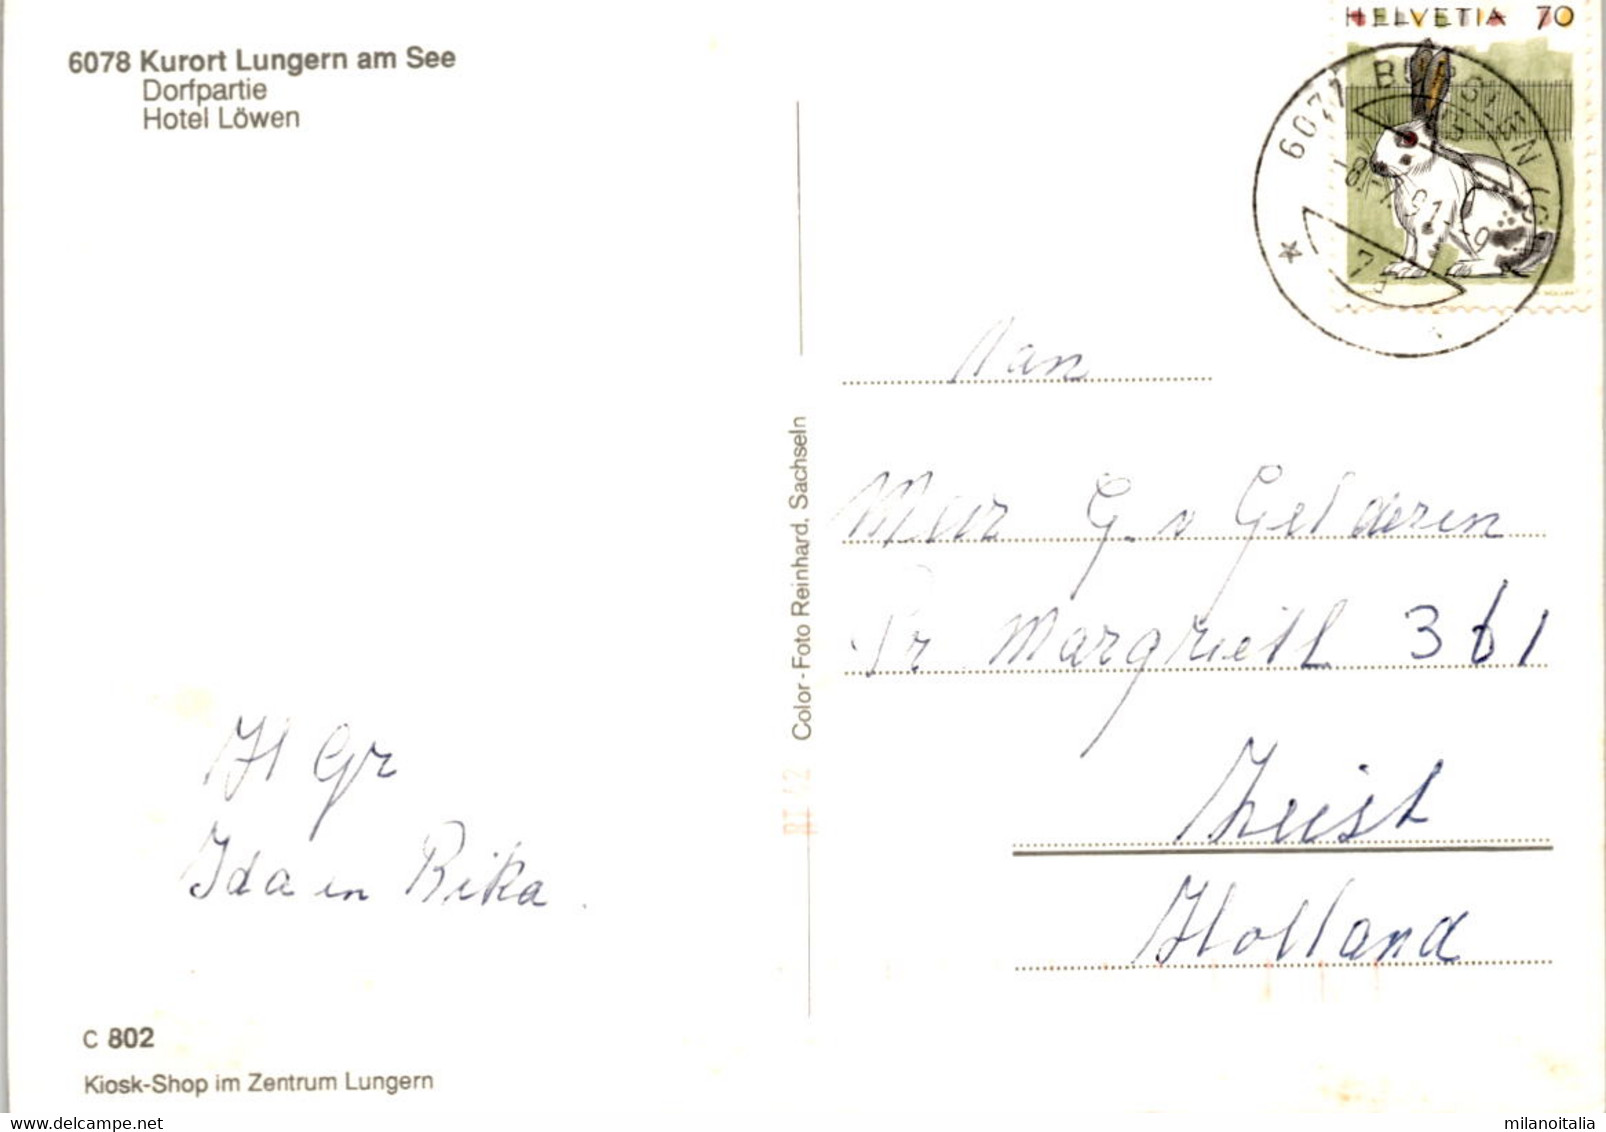 6078 Kurort Lungern am See
Dorfpartie
Hotel Löwen
HELVETIA 70
6071
Color-Foto Reinhard, Sachseln
Aan
G. v Gelderen
Pr Margrietl 361
Zeist
Holland
Gr
Ida en Rika.
C 802
Kiosk-Shop im Zentrum Lungern
www.delcampe.net
milanoitalia